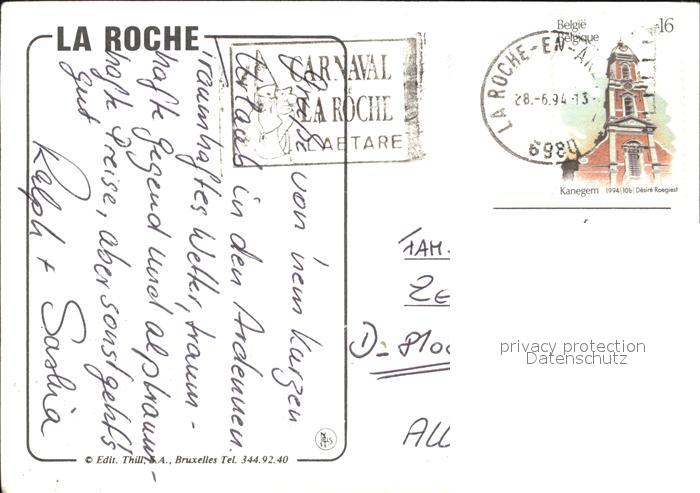 LA ROCHE
CARNAVAL
LA ROCHE
LAETARE
België
Belgique
16
LA ROCHE-EN-AR
28.-6.94-13
6980
Kanegem 1994 (10b) Désiré Roegiest
Grüße von 'nem kurzen
Urlaub in den Ardennen.
Traumhaftes Wetter, traum-
hafte Gegend und alptraum-
hafte Preise, aber sonst geht's
gut
Ralph + Saskia
FAM.
ZE
D-810
ALL
privacy protection
Datenschutz
© Edit. Thill, S.A., Bruxelles Tel. 344.92.40